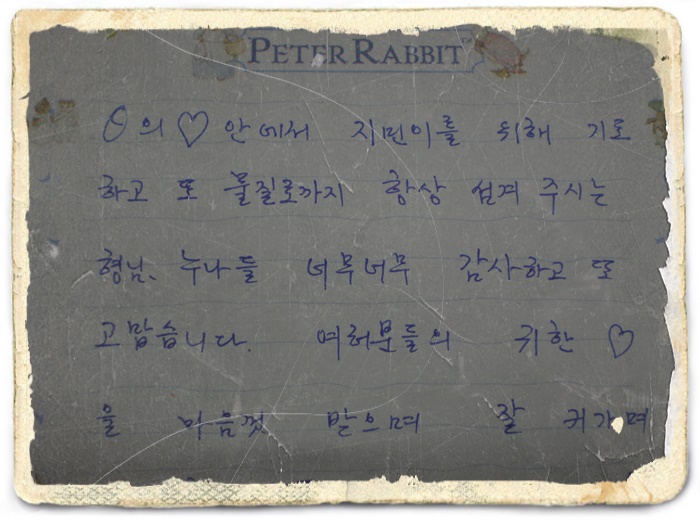 PETER RABBIT™
의 ♡ 안에서 지민이를 위해 기도
하고 또 물질로까지 항상 섬겨 주시는
형님、누나들 너무너무 감사하고 또
고맙습니다. 여러분들의 귀한 ♡
을 마음껏 받으며 잘 커가며